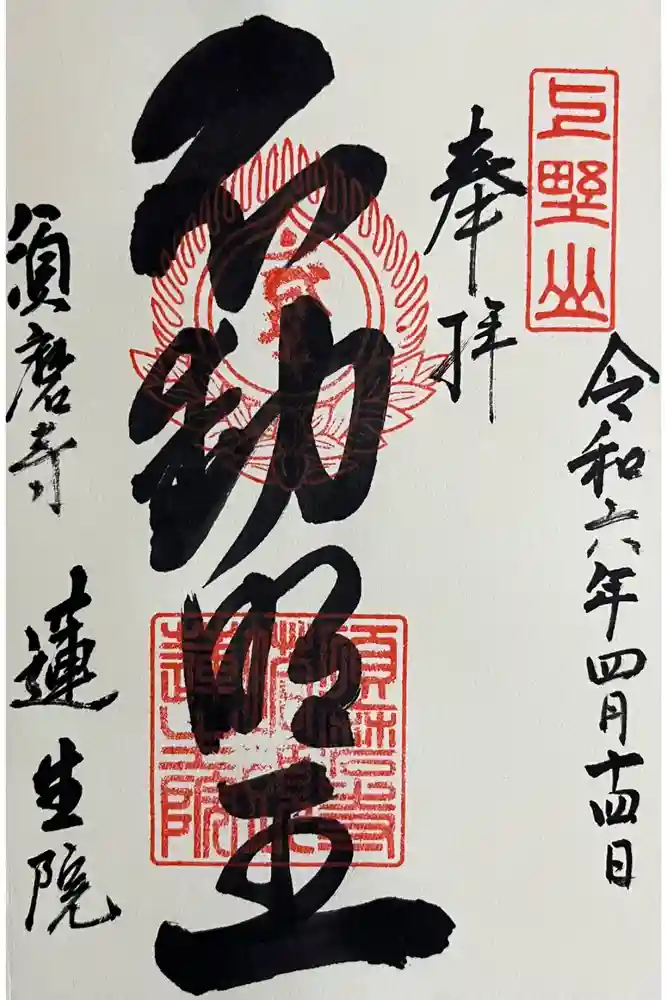 上野山
令和六年四月十四日
奉拝
不動明王
須磨寺 蓮生院